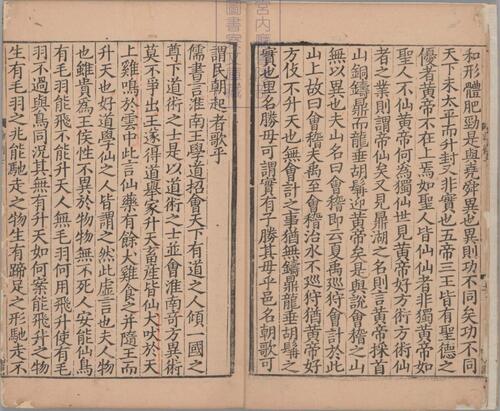 和形體肥勁是與堯舜異也異則功不同矣功不同
天下未太平而升封又非實也五帝三王皆有聖德之
優者黃帝不在上焉如聖人皆仙仙者非獨黃帝如
聖人不仙黃帝何為獨仙世見黃帝好方術方術仙
者之業則謂帝仙矣又見鼎湖之名則言黃帝採首
山銅鑄鼎而龍垂胡髯迎黃帝矣是與說會稽之山
無以異也夫山名曰會稽即云夏禹巡狩會計於此
山上故曰會稽夫禹至會稽治水不巡狩猶黃帝好
方伎不升天也無會計之事猶無鑄鼎龍垂胡髯之
實也里名勝母可謂實有子勝其母乎邑名朝歌可
謂民朝起者歌乎
儒書言淮南王學道招會天下有道之人傾一國之
尊下道術之士是以道術之士並會淮南奇方異術
莫不爭出王遂得道舉家升天畜產皆仙犬吠於天
上雞鳴於雲中此言仙藥有餘犬雞食之并隨王而
升天也好道學仙之人皆謂之然此虛言也夫人物
也雖貴為王侯性不異於物物無不死人安能仙鳥
有毛羽能飛不能升天人無毛羽何用飛升使有毛
羽不過與鳥同況其無有升天如何案能飛升之物
生有毛羽之兆能馳走之物生有蹄足之形馳走不